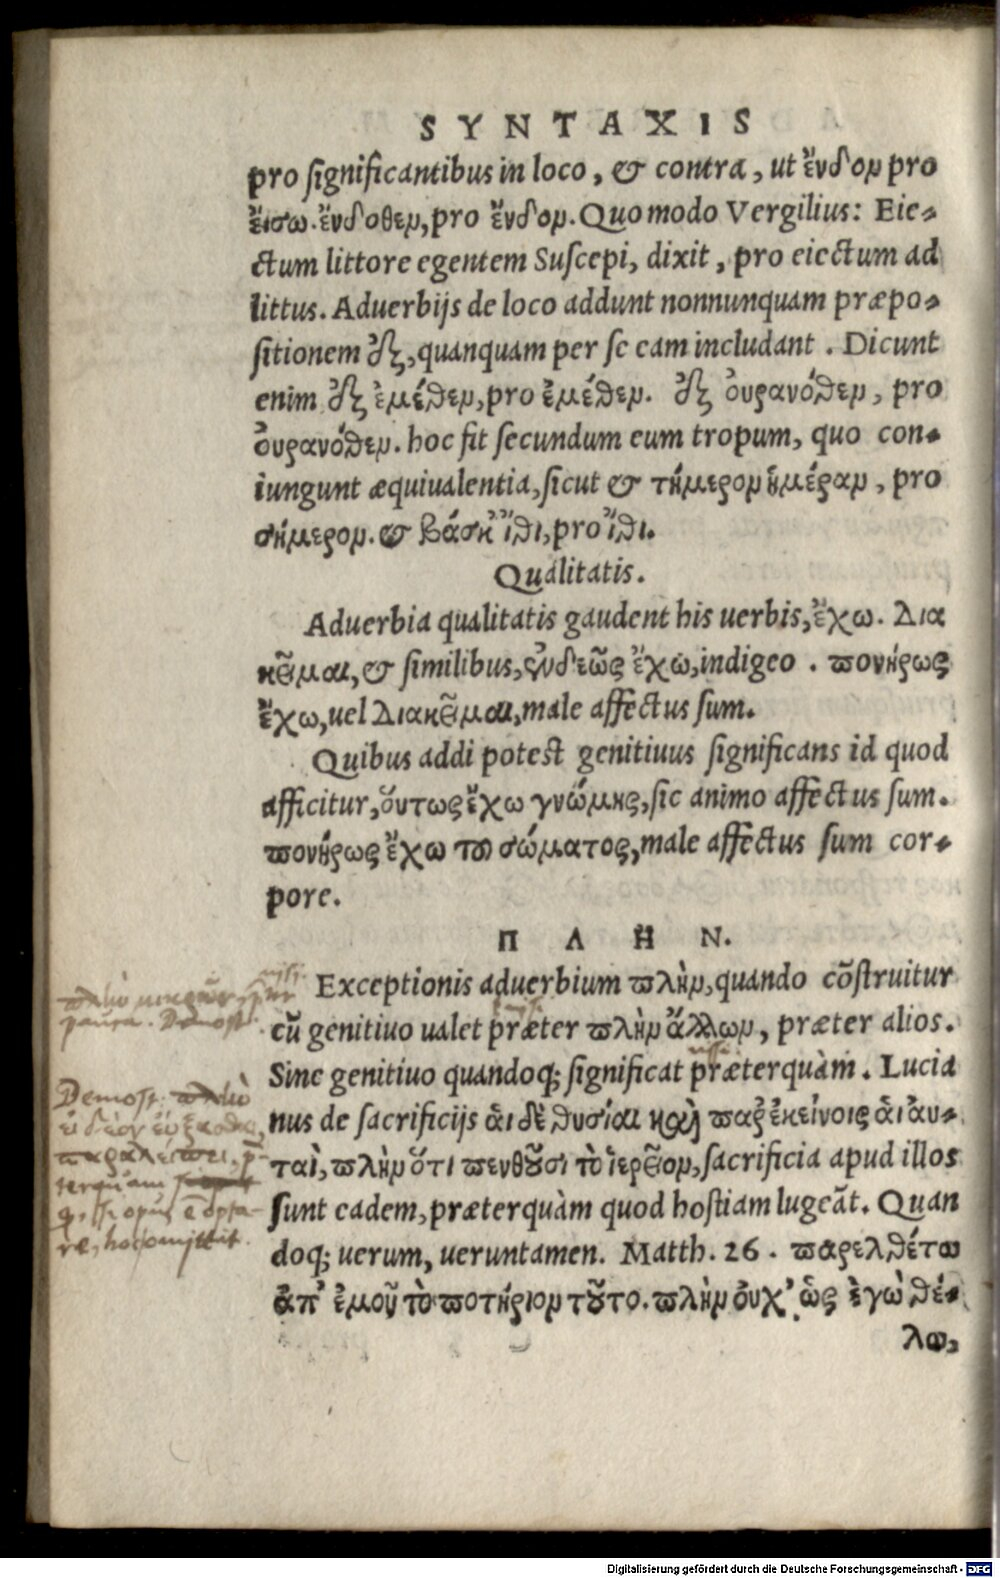 SYNTAXIS
pro significantibus in loco, & contra, ut ἔνδον pro
ἔισω. ἔνδοθεν, pro ἔνδον. Quomodo Vergilius: Eie-
ctum littore egentem Suscepi, dixit, pro eiectum ad
littus. Aduerbijs de loco addunt nonnunquam præpo-
sitionem ἐξ, quanquam per se eam includant. Dicunt
enim ἐξ ἐμέθεν, pro ἐμέθεν. ἐξ ὀυρανόθεν, pro
ὀυρανόθεν. hoc fit secundum eum tropum, quo con-
iungunt æquiualentia, sicut & τήμερον ἡμέραν, pro
σήμερον. & βάσκ' ἴθι, pro ἴθι.
Qualitatis.
Aduerbia qualitatis gaudent his uerbis, ἔχω. Δια
κεῖμαι, & similibus, ἐνδεῶς ἔχω, indigeo. πονήρως
ἔχω, uel Διακεῖμαι, male affectus sum.
Quibus addi potest genitiuus significans id quod
afficitur, ὅυτως ἔχω γνώμης, sic animo affectus sum.
πονήρως ἔχω τοῦ σώματος, male affectus sum cor-
pore.
ΠΛΗΝ.
nisi.
Exceptionis aduerbium πλὴν, quando cõstruitur
cũ genitiuo ualet præter πλὴν ἄλλων, præter alios.
nisi
Sine genitiuo quandoq; significat præterquàm. Lucia
nus de sacrificijs ἁι δὲ θυσίαι καὶ παρ' ἐκείνοις ἁι ἀυ-
ταὶ, πλὴν ὅτι πενθοῦσι τὸ ἱερεῖον, sacrificia apud illos
sunt eadem, præterquàm quod hostiam lugeãt. Quan
doq; uerum, ueruntamen. Matth. 26. παρελθέτω
ἀπ' ἐμοῦ τὸ ποτήριον τοῦτο. πλὴν ὀυχ' ὡς ἐγὼ θέ-
λω,
pauca. Demost.
Demost. πλὴν
παραλείπει. p̃-
terquam
re, hoc omittit.
Digitalisierung gefördert durch die Deutsche Forschungsgemeinschaft - DFG